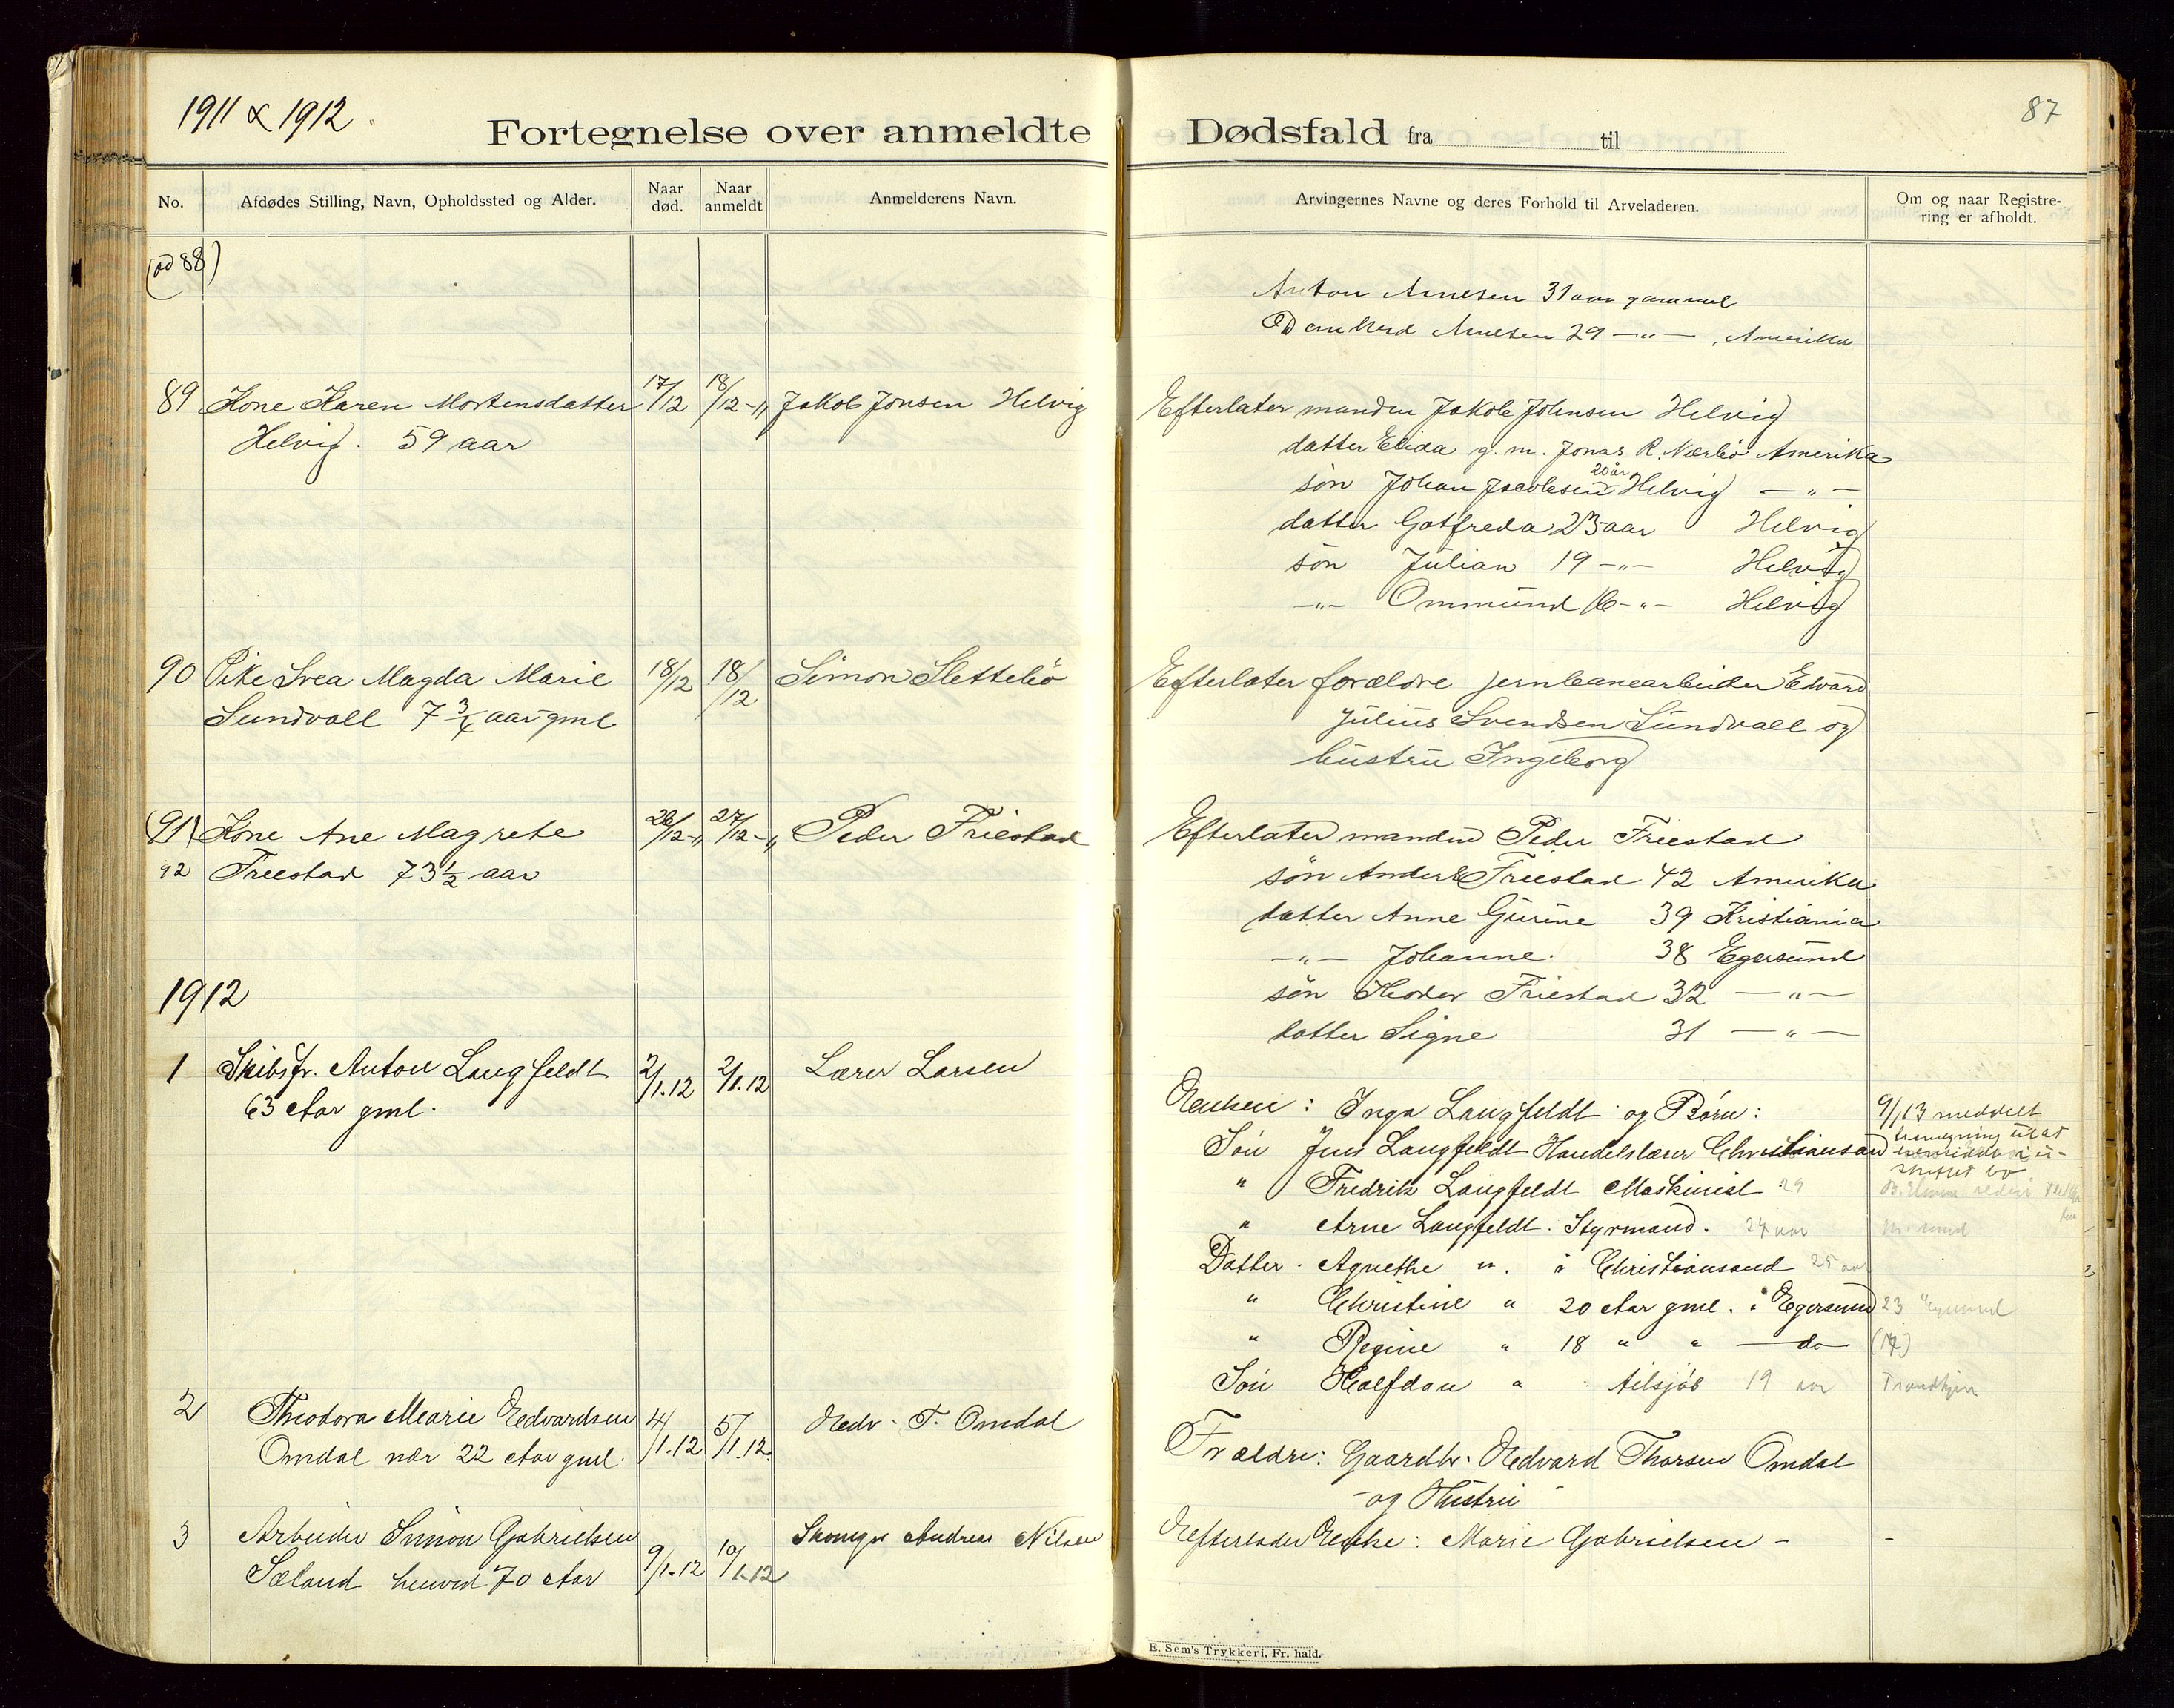 1911 & 1912.
87
Fortegnelse over anmeldte Dødsfald fra til
No.
Afdødes Stilling, Navn, Opholdssted og Alder.
Naar død.
Naar anmeldt
Anmelderens Navn.
Arvingernes Navne og deres Forhold til Arveladeren.
Om og naar Registre-
ring er afholdt.
(ad 88)
Anton Arnesen 31 aar gammel
Arnesen 29 —"— , Amerika
89 Kone Karen Mortensdatter 17/12 18/12 -" Jakob Jonsen Helvig
Helvig. 59 aar
Efterlater manden Jakob Johnsen Helvig
datter Elida g. m. Jonas R. Nærbö Amerika
sön Johan Jacobsen 20 år Helvig —"—
datter Gotfreda 23 aar Helvig
sön Julian 19 —"— Helvig
—"— Ommund 16 —"— Helvig
90 Pike Svea Magda Marie 18/12 18/12 Simon Slettebö
Sundvall 7 3/4 aar gml
Efterlater forældre jernbanearbeider Edvard
Julius Svendsen Sundvall og
hustru Ingeborg
(91) Kone Ane Magrete 26/12 -" 27/12 -" Peder Friestad
92 Friestad 73 1/2 aar
Efterlater manden Peder Friestad
sön Anders Friestad 42 Amerika
datter Anne Gurine 39 Kristiania
—"— Johanne. 38 Egersund
sön Friestad 32 —"—
datter Signe 31 —"—
1912
1 Skibsfr. Anton Langfeldt 2/1.12 2/1.12 Lærer Larsen
63 Aar gml.
Enken: Inga Langfeldt og Børn:
9/1 13 meddelt
Søn Jens Langfeldt Handelslærer Christiansand
skiftet bo
" Fredrik Langfeldt Maskinist 29
" Arne Langfeldt. Styrmand. 24 aar
Datter. Agnethe ". i Christiansand 25 aar
" Christine " 20 Aar gml. i Egersund 23 Egersund
" Regine " 18 " " — do — (17)
Søn Halfdan " tilsjøs 19 aar Trondhjem
2 Theodora Marie Edvardsen 4/1.12 5/1.12. Edv. T. Omdal
Omdal nær 22 Aar gml.
Forældre: Gaardbr. Edvard Thorsen Omdal
- og Hustru -
3 Arbeider Simon Gabrielsen 9/1.12 10/1.12 Andreas Nilsen
Sæland henved 70 Aar
Efterlader Enke: Marie Gabrielsen - -
E. Sem's Trykkeri, Fr. hald.